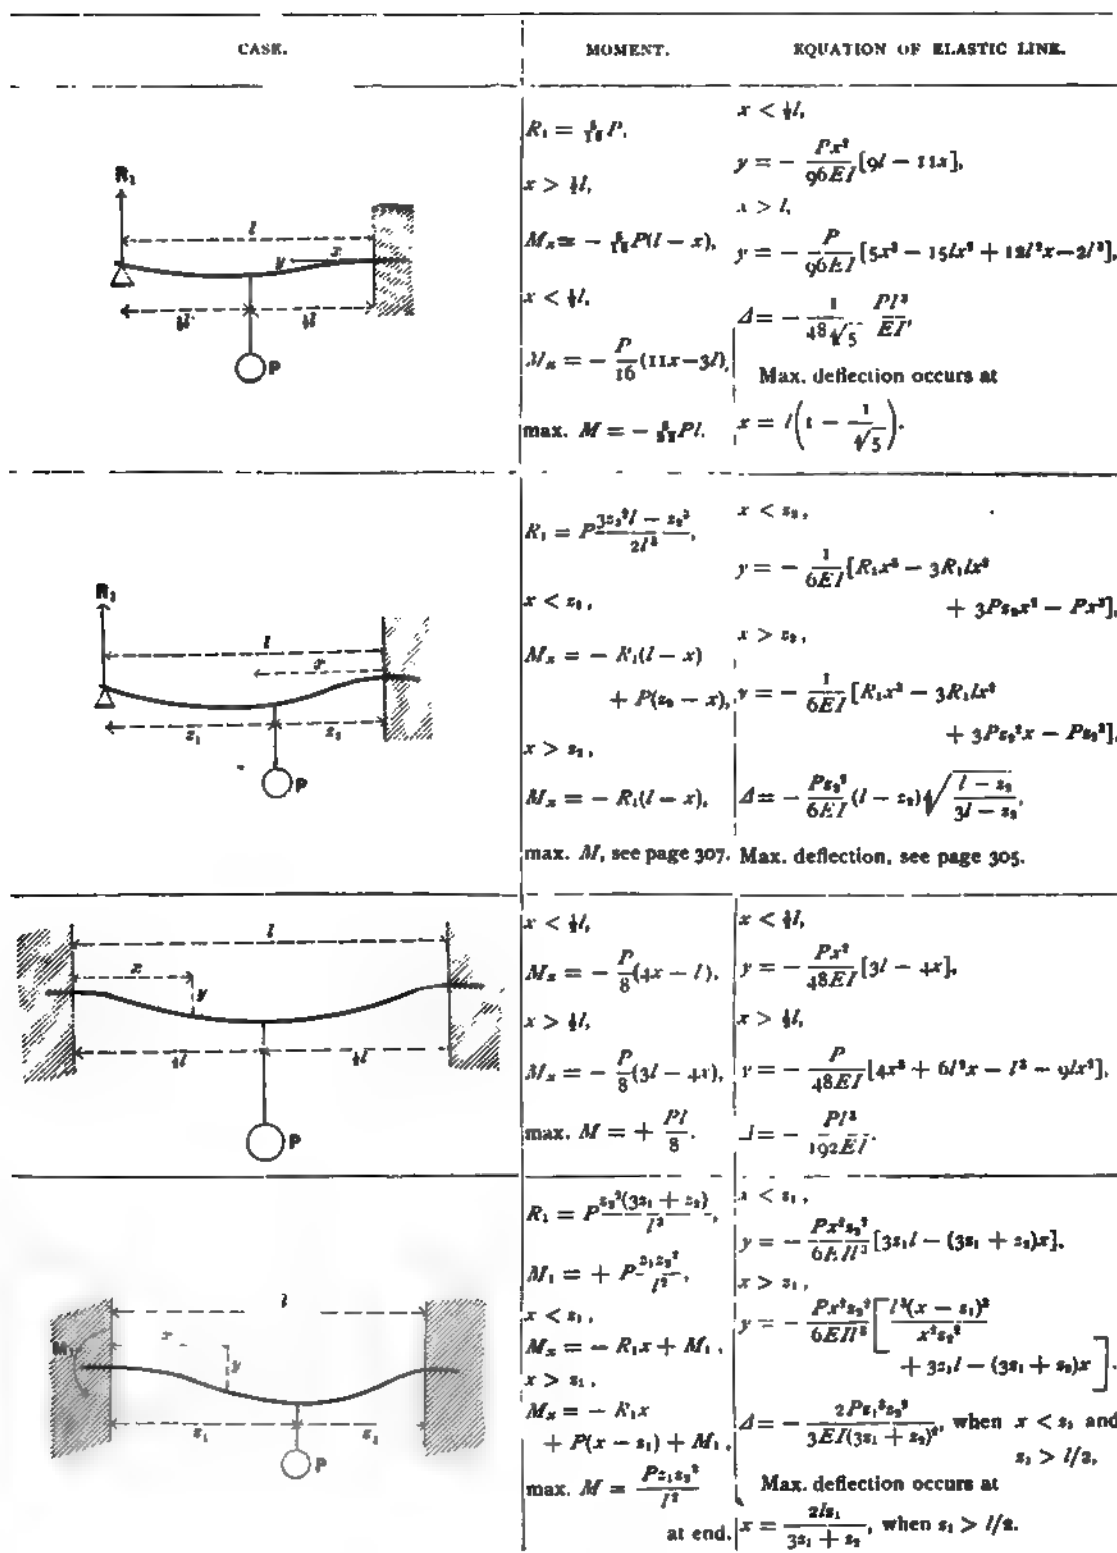 CASE. MOMENT. EQUATION OF ELASTIC LINE.
R₁
l
x
y
½l
½l
P
R₁ = 5/16 P,
x > ½l,
Mₓ = − 5/16 P(l − x),
x < ½l,
Mₓ = − P/16 (11x − 3l),
max. M = − 5/32 Pl.
x < ½l,
y = − Px²/96EI [9l − 11x],
x > l,
y = − P/96EI [5x³ − 15lx² + 12l²x − 2l³],
Δ = − 1/48√5 Pl³/EI,
Max. deflection occurs at
x = l(1 − 1/√5).
R₁
l
x
z₁
z₂
P
R₁ = P (3z₂²l − z₂³)/2l³,
x < z₂,
Mₓ = − R₁(l − x)
+ P(z₂ − x),
x > z₂,
Mₓ = − R₁(l − x),
max. M, see page 307.
x < z₂,
y = − 1/6EI [R₁x³ − 3R₁lx²
+ 3Pz₂x² − Px³],
x > z₂,
y = − 1/6EI [R₁x³ − 3R₁lx²
+ 3Pz₂²x − Pz₂³],
Δ = − Pz₂²/6EI (l − z₂) √((l − z₂)/(3l − z₂)),
Max. deflection, see page 305.
l
x
y
½l
½l
P
x < ½l,
Mₓ = − P/8 (4x − l),
x > ½l,
Mₓ = − P/8 (3l − 4x),
max. M = + Pl/8.
x < ½l,
y = − Px²/48EI [3l − 4x],
x > ½l,
y = − P/48EI [4x³ + 6l²x − l³ − 9lx²],
Δ = − Pl³/192EI.
l
M₁
x
y
z₁
z₂
P
R₁ = P z₂²(3z₁ + z₂)/l³,
M₁ = + P z₁z₂²/l²,
x < z₁,
Mₓ = − R₁x + M₁,
x > z₁,
Mₓ = − R₁x
+ P(x − z₁) + M₁,
max. M = Pz₁z₂²/l²
at end.
x < z₁,
y = − Px²z₂²/6EIl³ [3z₁l − (3z₁ + z₂)x],
x > z₁,
y = − Px²z₂²/6EIl³ [l³(x − z₁)³/x²z₂²
+ 3z₁l − (3z₁ + z₂)x].
Δ = − 2Pz₁³z₂²/3EI(3z₁ + z₂)², when x < z₁ and
z₁ > l/2,
Max. deflection occurs at
x = 2lz₁/(3z₁ + z₂), when z₁ > l/2.